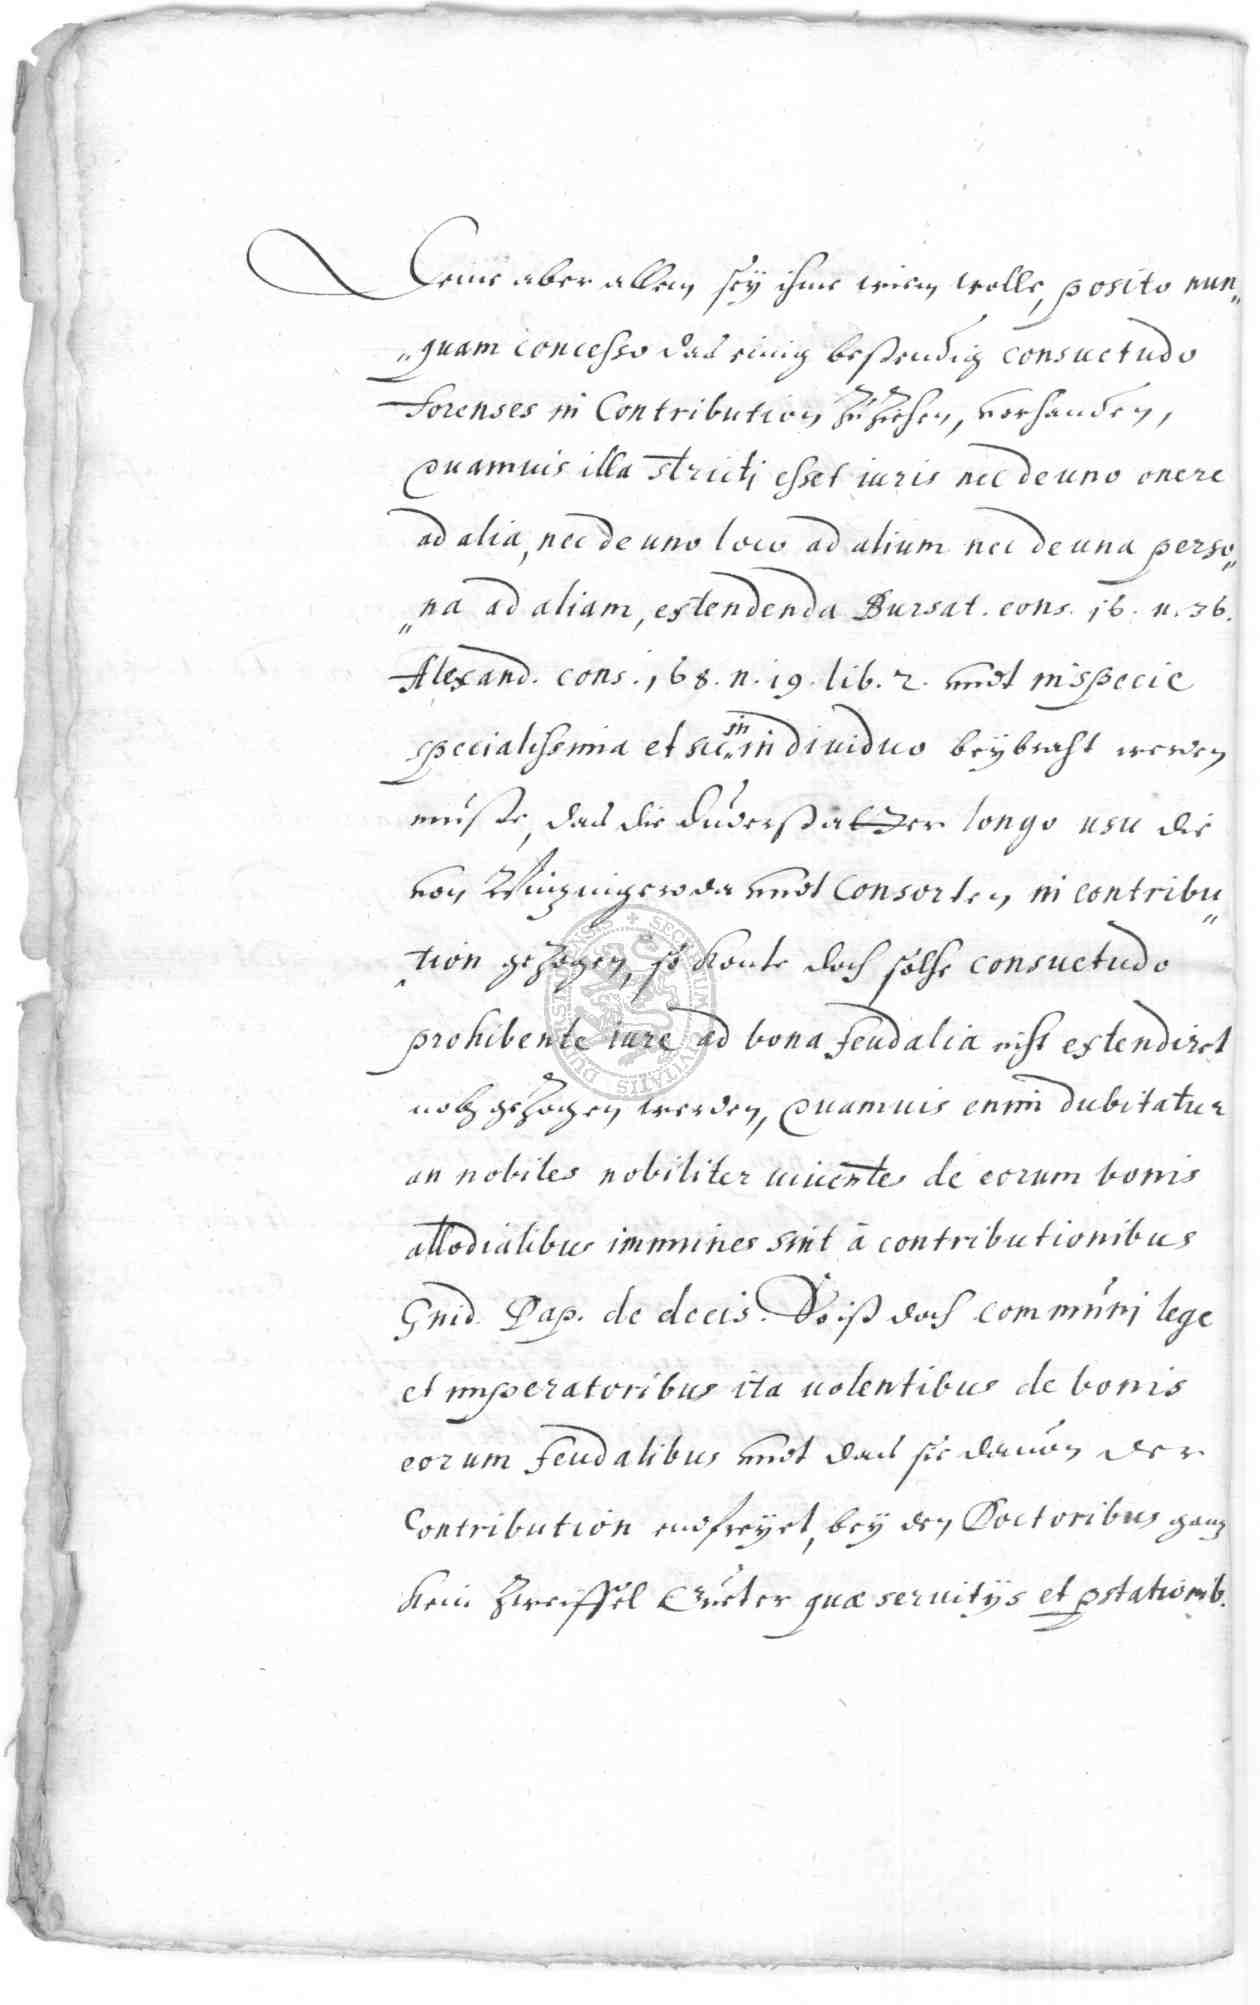 Deme aber allem sey ihme wiem wolle, posito nun„
„quam concesso das einig bestendig consuetudo
forenses in Contribution zu ziehen, vorhanden,
quamuis illa stricti esset iuris nec de uno onere
ad alia, nec de uno loco ad alium nec de una perso„
„na ad aliam, extendenda Bursat. cons. 16. n. 36.
Alexand. cons. 168. n. 19. lib. 2. undt in specie
specialissima et sic in indiuiduo beybracht werden
müste, das die Duderstatter longo usu die
von Wintzingeroda undt Consorten in contribu„
„tion gezogen, so konte doch solche consuetudo
prohibente iure ad bona feudalia nicht extendiret
noch gezogen werden, quamuis enim dubitatur
an nobiles nobiliter uiuentes de eorum bonis
allodialibus immunes sint à contributionibus
Guid. Pap. de decis. So ist doch communi lege
et imperatoribus ita uolentibus de bonis
eorum feudalibus undt das sie dauon der
Contribution endfreyet, bey den Doctoribus gantz
kein zweiffel Güeter quae seruitijs et pstationib.
SECRETUM CIVITATIS DUDERSTADENSIS